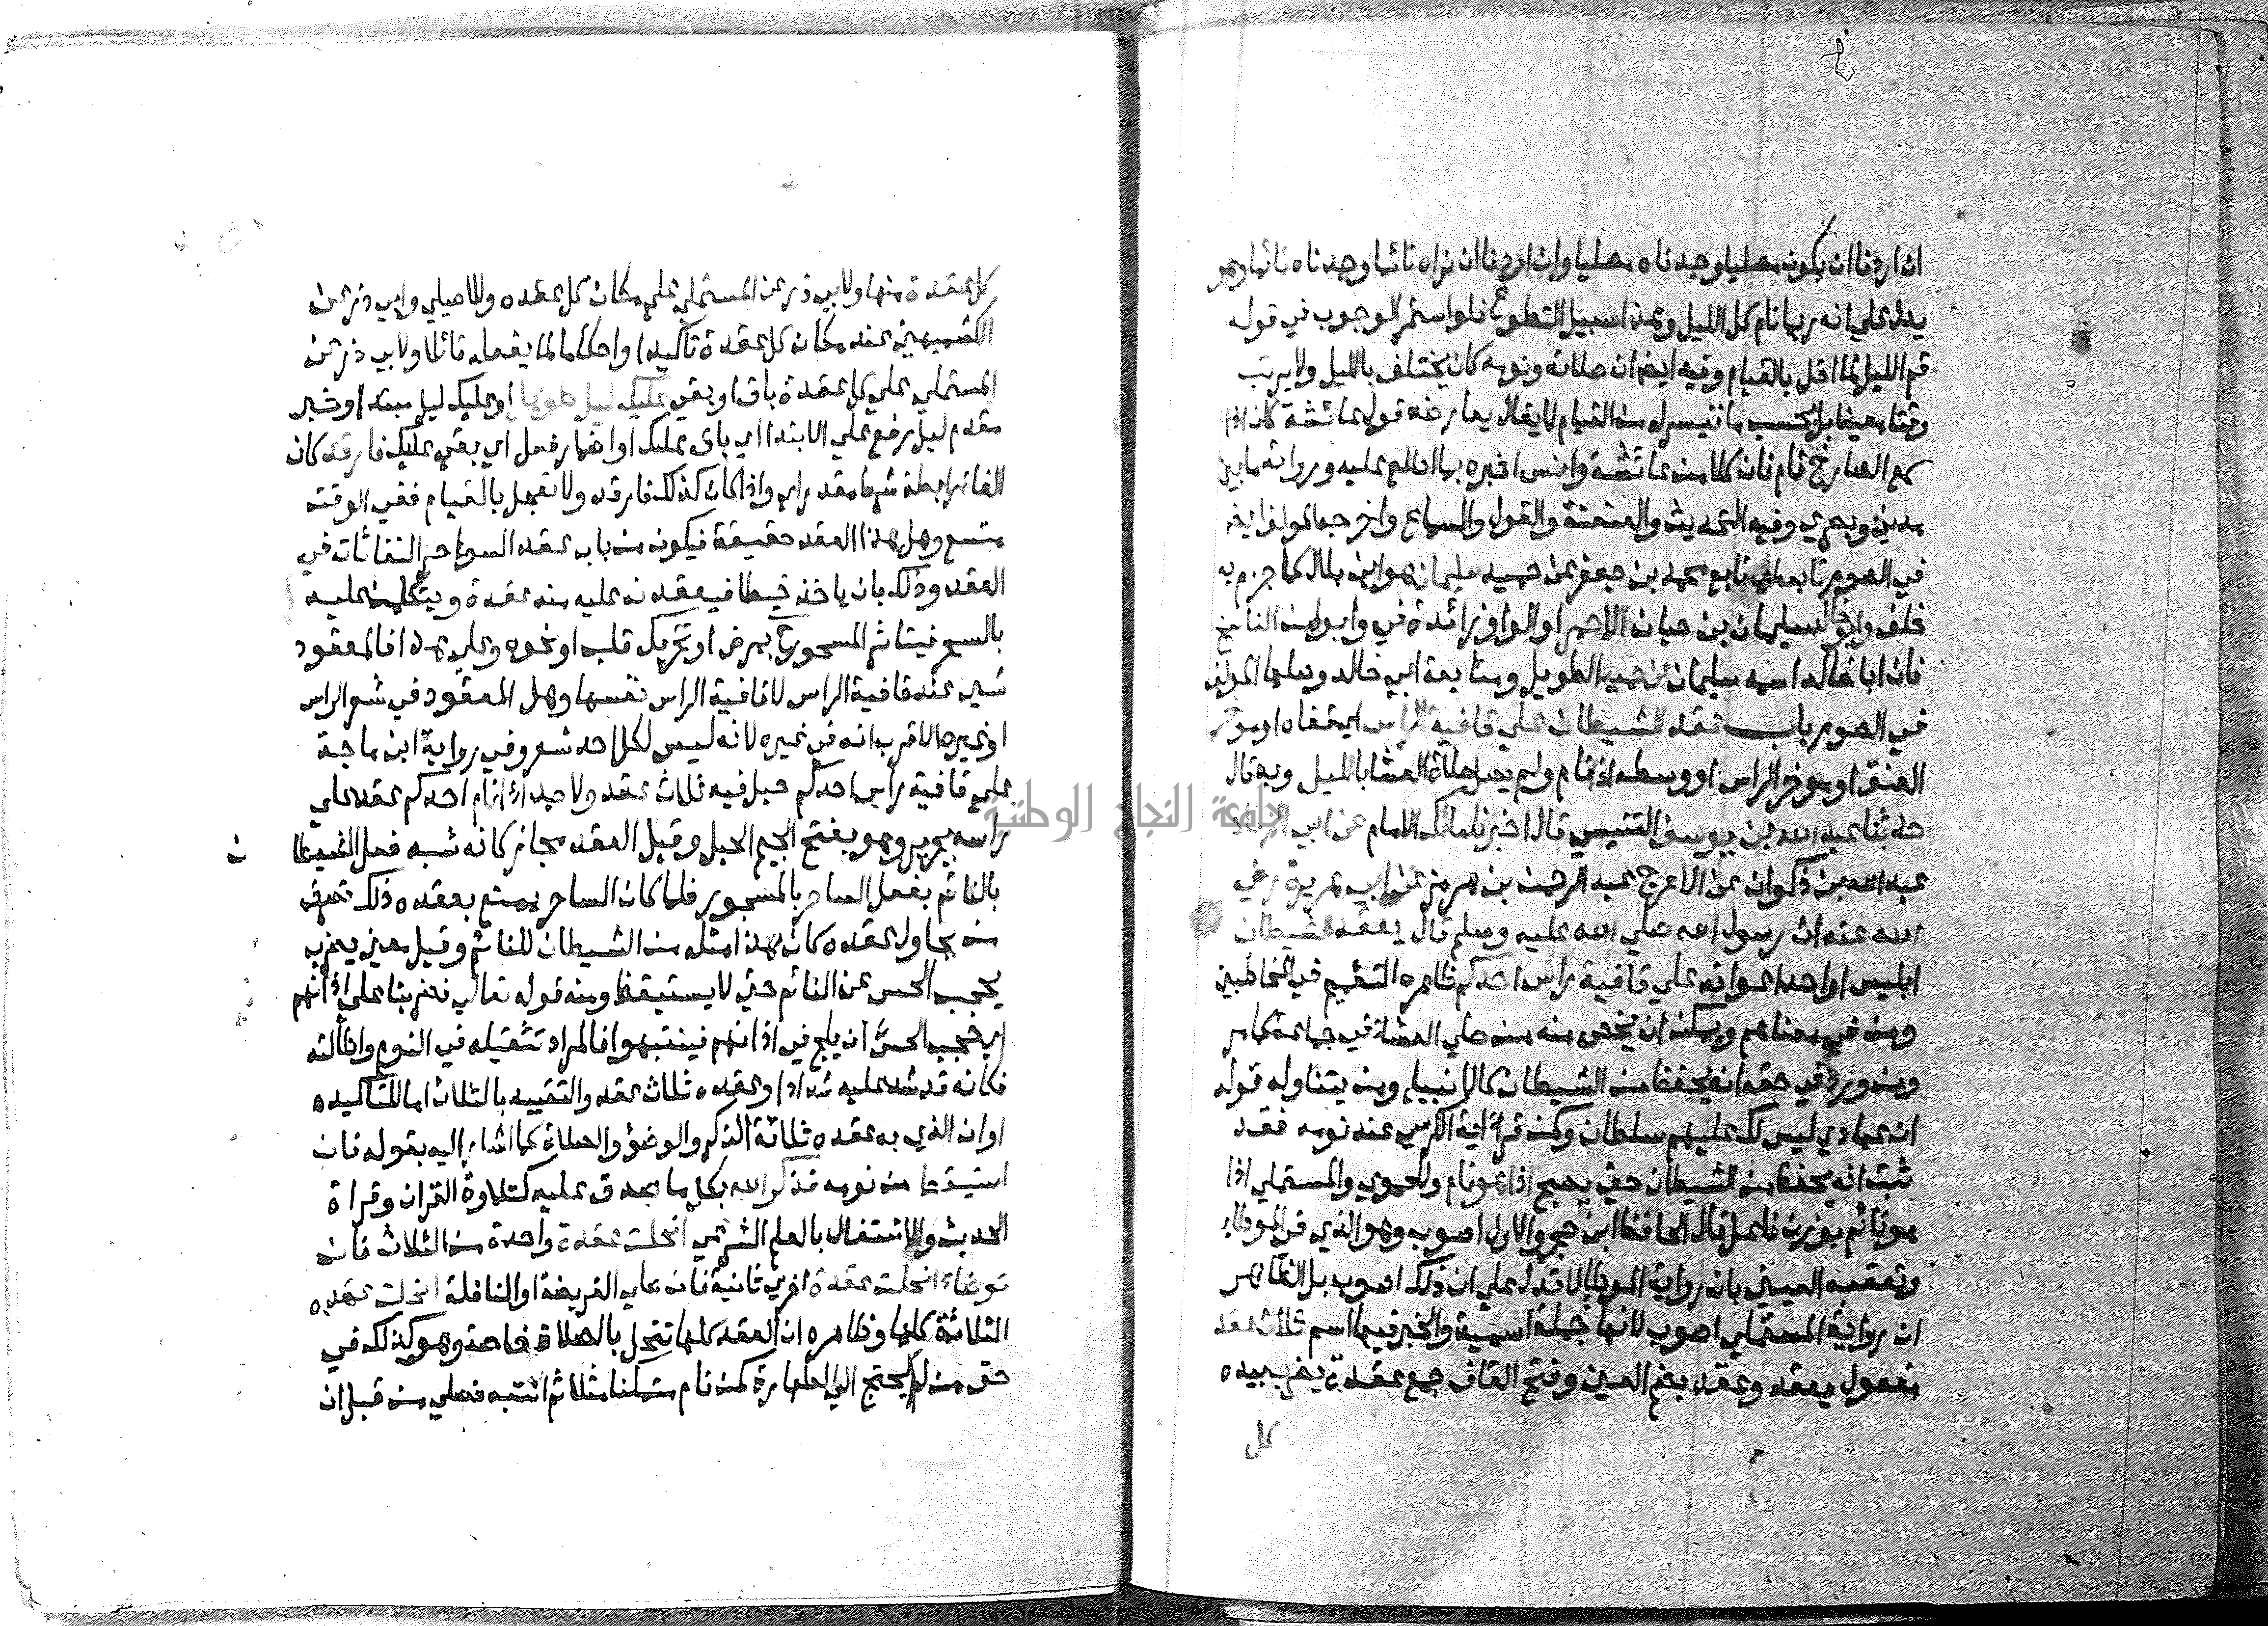 ان اردنا ان يكون مصليا وجدناه مصليا وان اردنا ان نراه نائما وجدناه نائما وهو
يدل علي انه ربما نام كل الليل وهذا سبيل التطوع فلو استمر الوجوب في قوله
قم الليل لما اخل بالقيام وفيه ايضا ان صلاته ونومه كان يختلف بالليل ولا يرتب
وقتا معينا بل بحسب ما تيسر له من القيام لا يقال يعارضه قول عائشة كان اذا
سمع الصارخ قام فان كلا من عائشة وانس اخبره بما اطلع عليه ورواته ما بين
مدني وبصري وفيه التحديث والعنعنة والقول والسماع واخرجه المولف ايضا
في الصوم تابعه اي تابع محمد بن جعفر عن حميد سليمان هو ابن بلال كما جزم به
خلف وابو خالد سليمان بن حيان الاحمر او الواو زائدة في وابو من الناسخ
فان ابا خالد اسمه سليمان عن حميد الطويل ومتابعة ابي خالد وصلها المولف
في الصوم باب عقد الشيطان علي قافية الراس اي قفاه او موخر
العنق او موخر الراس او وسطه اذا نام ولم يصل صلاة العشا بالليل وبه قال
حدثنا عبد الله بن يوسف التنيسي قال اخبرنا مالك الامام عن ابي الزناد
عبد الله بن ذكوان عن الاعرج عبد الرحمن بن هرمز عن ابي هريرة رضي
الله عنه ان رسول الله صلي الله عليه وسلم قال يعقد الشيطان
ابليس او احد اعوانه علي قافية راس احدكم ظاهره التعميم في المخاطبين
ومن في معناهم ويمكن ان يخص منه من صلي العشاء في جماعة كما مر
ومن ورد في حقه انه يحفظ من الشيطان كالانبياء ومن يتناوله قوله
ان عبادي ليس لك عليهم سلطان وكمن قرا اية الكرسي عند نومه فقد
ثبت انه يحفظ من الشيطان حتي يصبح اذا هو نام وللحموي والمستملي اذا
هو نائم بوزن فاعل قال الحافظ ابن حجر والاول اصوب وهو الذي في الموطاء
وتعقبه العيني بان رواية الموطا لا تدل علي ان ذلك اصوب بل الظاهر
ان رواية المستملي اصوب لانها جملة اسمية والخبر فيها اسم ثلاث عقد
مفعول يعقد وعقد بضم العين وفتح القاف جمع عقدة يضرب بيده
كل
كل عقدة منها ولابي ذر عن المستملي علي مكان كل عقده وللاصيلي وابي ذر عن
الكشميهني عند مكان كل عقدة تاكيدا واحكاما لما يفعله قائلا ولابي ذر عن
المستملي علي كل عقدة باق او بقي عليك ليل طويل او عليك ليل مبتدا وخبر
مقدم ليل رفع علي الابتدا اي باق عليك او اضمار فعل اي بقي عليك فارقد كان
الفا رابطة شرط مقدر اي واذا كان كذلك فارقد ولا تعجل بالقيام ففي الوقت
متسع وهل هذا العقد حقيقة فيكون من باب عقد السواحر النفاثات في
العقد وذلك بان ياخذن خيطا فيعقدن عليه منه عقدة ويتكلمن عليه
بالسحر فيتاثر المسحور ح بمرض او تحريك قلب او نحوه وعلي هذا فالمعقود
شي عند قافية الراس لا قافية الراس نفسها وهل المعقود في شعر الراس
او غيره الاقرب انه في غيره لانه ليس لكل احد شعر وفي رواية ابن ماجة
علي قافية راس احدكم حبل فيه ثلاث عقد ولاحمد اذا نام احدكم عقد علي
راسه بجرير وهو بفتح الجيم الحبل وقيل العقد مجاز كانه شبه فعل الشيطا ن
بالنائم بفعل الساحر بالمسحور فلما كان الساحر يمنع بعقده ذلك تصرف
من يحاول عقده كان هذا مثله من الشيطان للنائم وقيل معني يضرب
يحجب الحس عن النائم حتي لا يستيقظ ومنه قوله تعالي فضربنا علي اذانهم
اي حجب الحس ان يلج في اذانهم فينتبهوا فالمراد تثقيله في النوم واطالته
فكانه قد شد عليه شدادا وعقده ثلاث عقد والتقييد بالثلاث اما للتاكيد ه
او ان الذي به عقده ثلاثة الذكر والوضؤ والصلاة كما اشار اليه بقوله فان
استيقظ من نومه فذكر الله بكل ما يصدق عليه كتلاوة القران وقراة
الحديث والاشتغال بالعلم الشرعي انحلت عقدة واحدة من الثلاث فان
توضاء انحلت عقدة اخري ثانية فان صلي الفريضة او النافلة انحلت عقده
الثلاثة كلها وظاهره ان العقد كلها تنحل بالصلاة خاصة وهو كذلك في
حق من لم يحتج الي الطهارة كمن نام متمكنا مثلا ثم انتبه فصلي من قبل ان
جامعة النجاح الوطنية